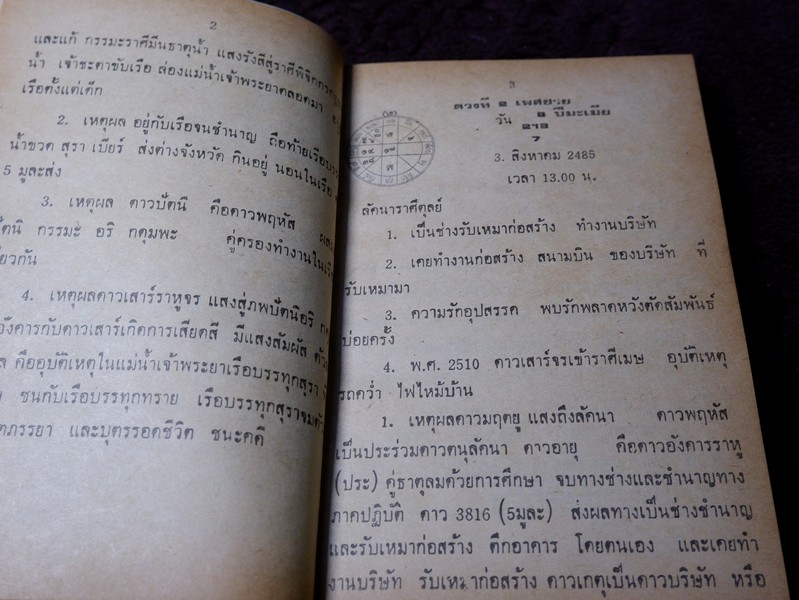 2
และแก้ กรรมะราศีมีนธาตุน้ำ แสงรังสีสู่ราศีพิจิก
น้ำ เจ้าชะตาขับเรือ ล่องแม่น้ำเจ้าพระยาตลอดมา
เรือตั้งแต่เด็ก
2. เหตุผล อยู่กับเรือจนชำนาญ ถือท้ายเรือ
น้ำขวด สุรา เบียร์ ส่งต่างจังหวัด กินอยู่ นอนในเรือ
5 มูละส่ง
3. เหตุผล ดาวปัตนิ คือดาวพฤหัส
ปัตนิ กรรมะ อริ กดุมพะ คู่ครองทำงานใน
ยวกัน
4. เหตุผลดาวเสาร์ราหูจร แสงสู่ภพปัตนิอริ
วังคารกับดาวเสาร์เกิดการเสียดสี มีแสงสัมผัส
ล คืออุบัติเหตุในแม่น้ำเจ้าพระยาเรือบรรทุกสุรา
ชนกับเรือบรรทุกทราย เรือบรรทุกสุราจม
ตภรรยา และบุตรรอดชีวิต ชนะคดี
3
ดวงที่ 2 เพศชาย
วัน 2 ปีมะเมีย
7
3. สิงหาคม 2485
เวลา 13.00 น.
ลัคนาราศีตุลย์
1. เป็นช่างรับเหมาก่อสร้าง ทำงานบริษัท
2. เคยทำงานก่อสร้าง สนามบิน ของบริษัท ที่
รับเหมามา
3. ความรักอุปสรรค พบรักพลาดหวังตัดสัมพันธ์
บ่อยครั้ง
4. พ.ศ. 2510 ดาวเสาร์จรเข้าราศีเมษ อุบัติเหตุ
รถคว่ำ ไฟไหม้บ้าน
1. เหตุผลดาวมฤตยู แสงถึงลัคนา ดาวพฤหัส
เป็นประร่วมดาวตนุลัคนา ดาวอายุ คือดาวอังคารราหู
(ประ) คู่ธาตุลมด้วยการศึกษา จบทางช่างและชำนาญทาง
ภาคปฏิบัติ ดาว 3816 (5มูละ) ส่งผลทางเป็นช่างชำนาญ
และรับเหมาก่อสร้าง ตึกอาคาร โดยตนเอง และเคยทำ
งานบริษัท รับเหมาก่อสร้าง ดาวเกตุเป็นดาวบริษัท หรือ